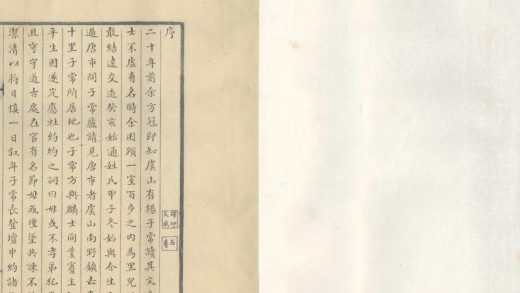 序
二十年前余方冠即知虞山有楊子常讀其文
士不虛有名時余困頓一室百步之內為里兒
敢結遠交迨癸亥始通姓氏甲子冬始與介生
過唐市問子常廬請見唐市者虞山南野鎮去
十里子常所居地也子常方與麟士同業賓主
平生因遂定應社約約之詞曰毋或不孝弟犯
且守守道古處在官有名節毋或墮墜共諫不
潔清以狥日慎一日叙年子常長登壇申約諸